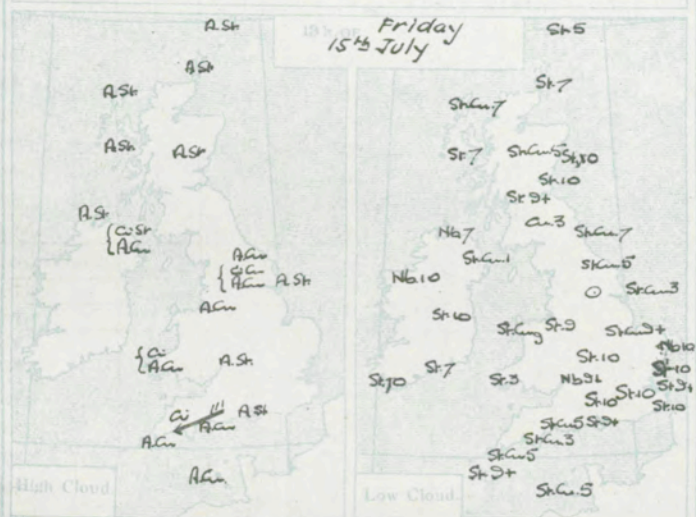 Friday
15th July
A.St.
A.St.
A.St.
A.St.
A.St.
A.St.
Ci St
A.Cu
A.Cu
Ci Cu
A.Cu
A.St.
A.Cu
Ci
A.Cu
A.St.
Ci
A.St
A.Cu
A.Cu
A.Cu
High Cloud.
St.5
St.7
St.Cu.7
St.7
St.Cu.5
St.10
St.10
St.9+
Cu.3
Nb.7
St.Cu.7
St.Cu.1
St.Cu.5
Nb.10
St.Cu.3
St.10
St.Cu.9
St.9
St.Cu.9+
Nb.10
St.10
St.7
St.10
St.10
St.3
Nb.9+
St.9+
St.10
St.10
St.10
St.Cu.5
St.9+
St.Cu.3
St.Cu.5
St.9+
St.Cu.5
Low Cloud.